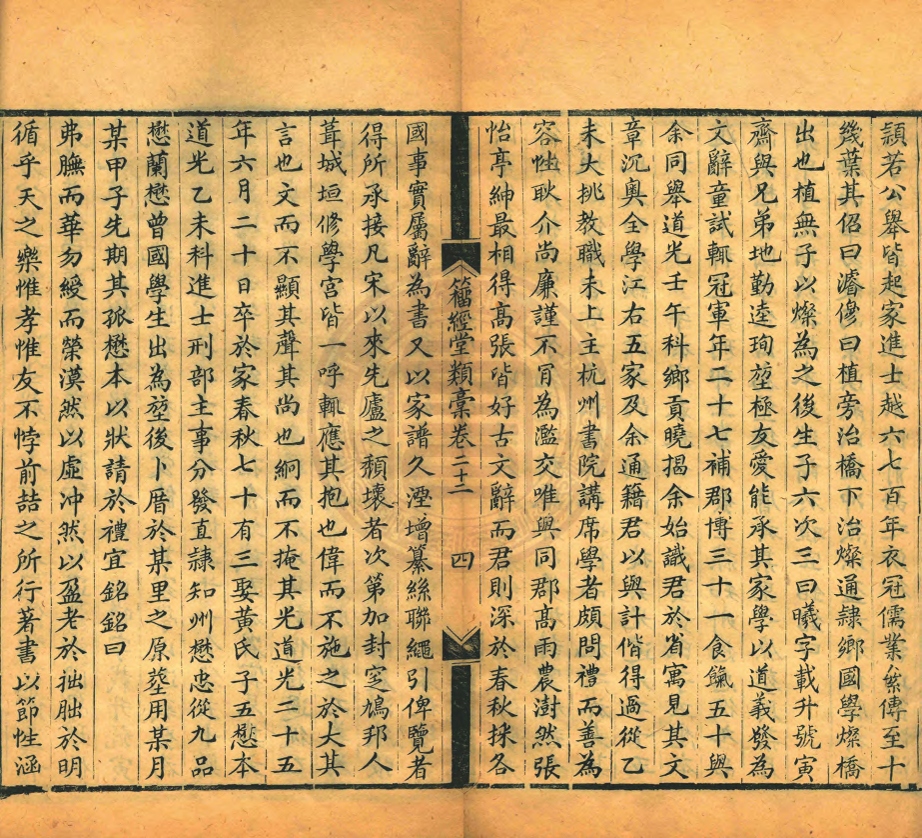 潁若公舉皆起家進士越六七百年衣冠儒業絫傳至十
幾葉其佋曰濬僇曰植旁治橋下治燦通隷鄉國學燦橋
出也植無子以燦為之後生子六次三曰曦字載升號寅
齋與兄弟地勤逵珣堃極友愛能承其家學以道義發為
文辭童試輒冠軍年二十七補郡博三十一食餼五十與
余同舉道光壬午科鄉貢曉揭余始識君於省寓見其文
章沉奧全學江右五家及余通籍君以與計偕得過從乙
未大挑教職未上主杭州書院講席學者頗問禮而善為
容性耿介尚廉謹不肎為濫交唯與同郡髙雨農澍然張
怡亭紳最相得髙張皆好古文辭而君則深於春秋採各
籀經堂類稾卷二十二 四
國事實屬辭為書又以家譜久湮增纂絲聯繩引俾覽者
得所承接凡宋以來先廬之頽壞者次第加封窆鳩邦人
葺城垣修學宮皆一呼輒應其抱也偉而不施之於大其
言也文而不顯其聲其尚也絅而不掩其光道光二十五
年六月二十日卒於家春秋七十有三娶黃氏子五懋本
道光乙未科進士刑部主事分發直隷知州懋忠從九品
懋蘭懋曾國學生出為堃後卜厝於某里之原塟用某月
某甲子先期其孤懋本以狀請於禮宜銘銘曰
弗膴而華勿綬而榮漠然以虛冲然以盈老於祂朏於明
循乎天之樂惟孝惟友不悖前喆之所行著書以節性涵